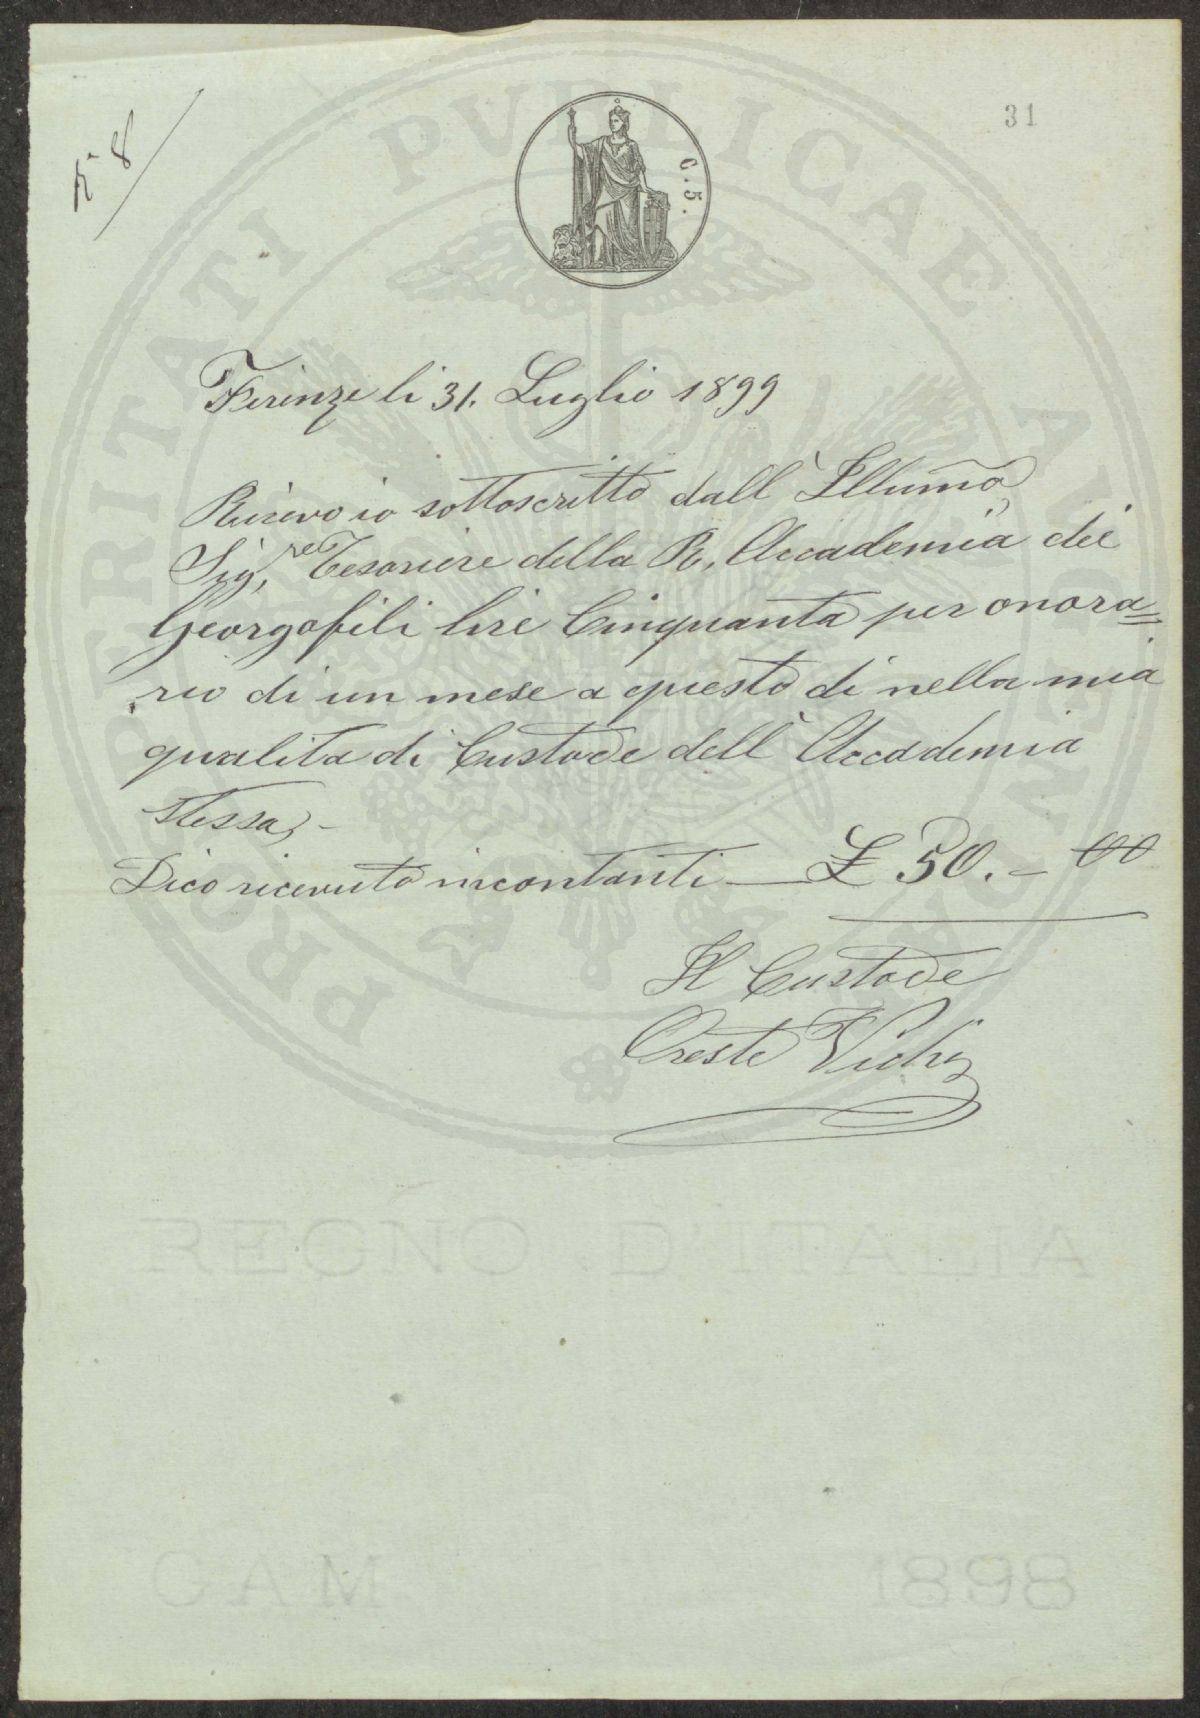 31
N° 8
C. 5.
Firenze li 31. Luglio 1899
Ricevo io sottoscritto dall' Illumo
Sig,re Tesoriere della R. Accademia dei
Georgofili lire Cinquanta per onora=
rio di un mese a questo di nella mia
qualita di Custode dell' Accademia
stessa, -
Dico ricevuto incontanti — £ 50. - 00
Il Custode
Oreste Vichi
PROSPERITATI PVBLICAE AVGENDAE
REGNO D'ITALIA
CAM 1898